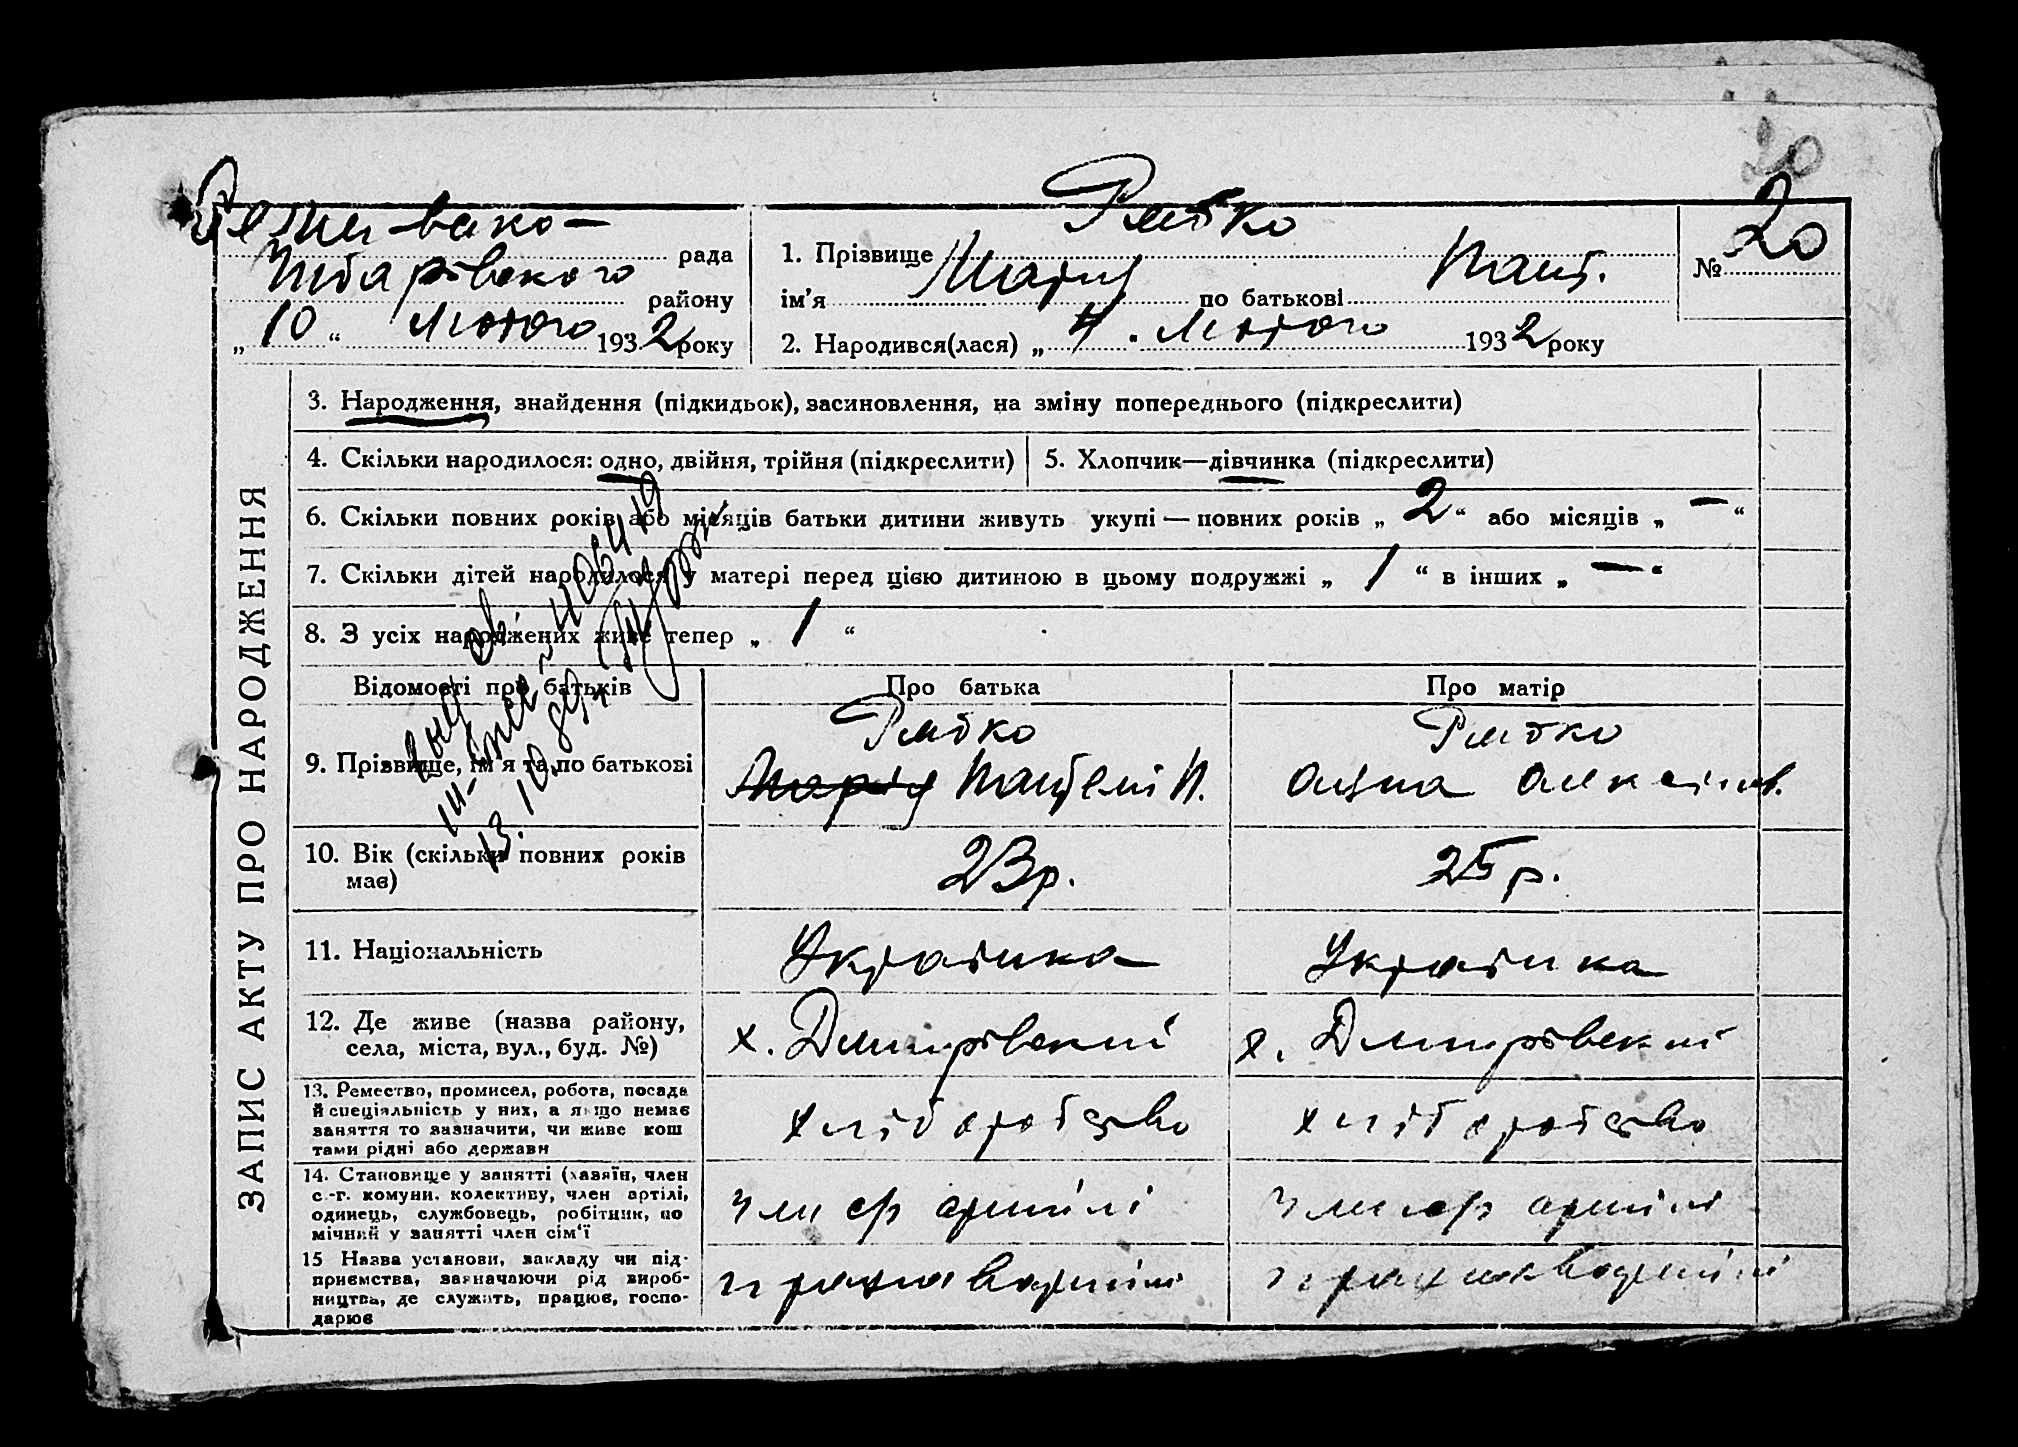 20
рада
району
„ 10 “ Лютого 1932 року
1. Прізвище Рябко
ім'я Марія по батькові Пант.
2. Народився(лася) „ 4. Лютого 1932 року
№ 20
ЗАПИС АКТУ ПРО НАРОДЖЕННЯ
3. Народження, знайдення (підкидьок), засиновлення, на зміну попереднього (підкреслити)
4. Скільки народилося: одно, двійня, трійня (підкреслити)
5. Хлопчик—дівчинка (підкреслити)
6. Скільки повних років або місяців батьки дитини живуть укупі — повних років „ 2 “ або місяців „ — “
7. Скільки дітей народилося у матері перед цією дитиною в цьому подружжі „ 1 “ в інших „ — “
8. З усіх народжених живе тепер „ 1 “
Відомості про батьків
Про батька
Про матір
9. Прізвище, ім'я та по батькові
Рябко
Марія Пантелій П.
Рябко
10. Вік (скільки повних років
має)
23 р.
25 р.
11. Національність
Українка
Українка
12. Де живе (назва району,
села, міста, вул., буд. №)
х. Дмитрівский
х. Дмитрівский
13. Ремество, промисел, робота, посада
й специяльність у них, а якщо немає
заняття то зазначити, чи живе кош
тами рідні або держави
хліборобство
хліборобство
14. Становище у занятті (хазяїн, член
с.-г. комуни, колективу, член артілі,
одинець, службовець, робітник, по
мічний у занятті член сім'ї
член с/г артілі
член с/г артілі
15 Назва установи, закладу чи під-
приємства, зазначаючи рід вироб-
ництва, де служить, працює, госпо-
дарює